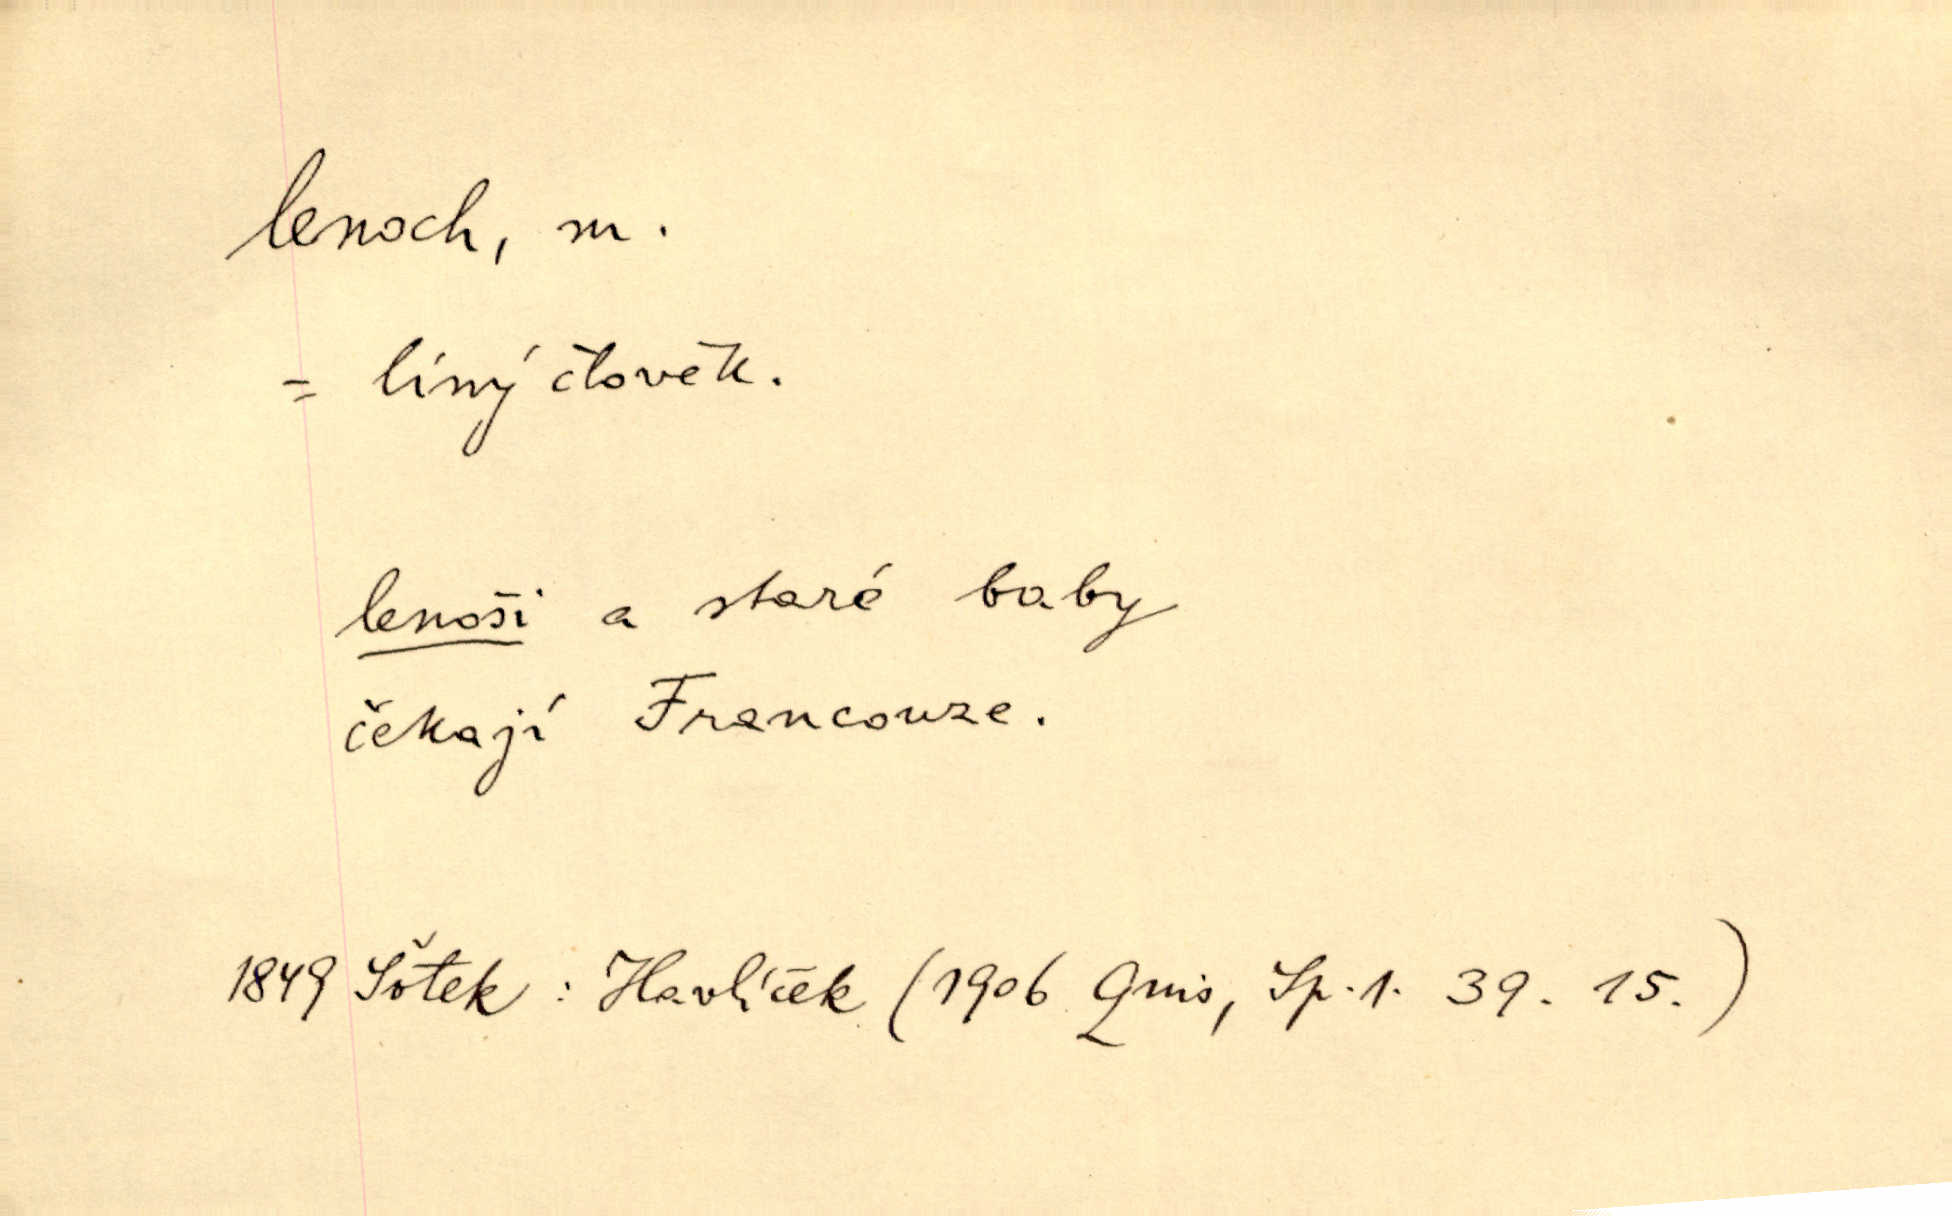 lenoch, m.
= líný člověk.
lenoši a staré baby
čekají Francouze.
1849 Šotek: Havlíček (1906 Quis, Sp. 1. 39. 15.)